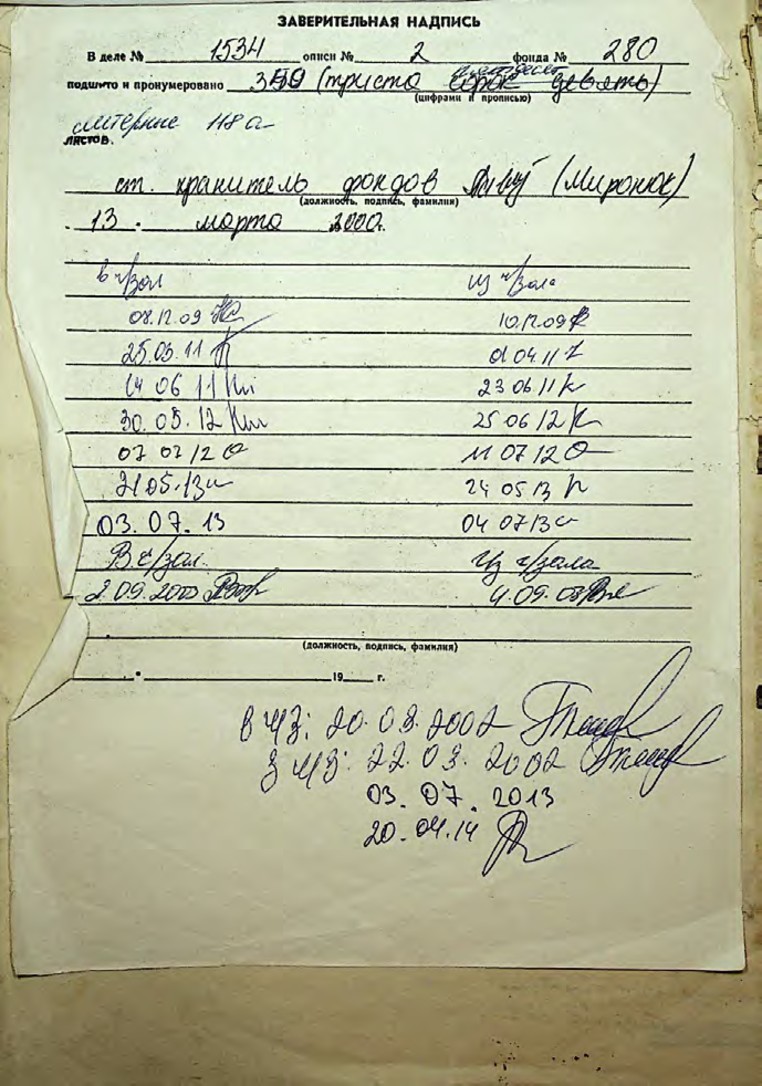 ЗАВЕРИТЕЛЬНАЯ НАДПИСЬ
В деле № 1534 описи № 2 фонда № 280
подшито и пронумеровано 359 (триста пятдесят девять)
(цифрами и прописью)
литерние 118а
листов.
ст. хранитель фондов (Миронюк)
(должность, подпись, фамилия)
13 марта 2000 г.
в ч/зал из ч/зала
08.12.09 10.12.09
25.03.11 01 04 11
14 06 11 23 06 11
30.05.12 25 06 12
07 07 12 11 07 12
21 05.13 24 05 13
03.07.13 04 07 13
В ч/зал. Из ч/зала
2.09.2003 4.09.03
(должность, подпись, фамилия)
19 г.
В ЧЗ: 20.03.2002
З ЧЗ: 22.03.2002
03.07.2013
20.04.14